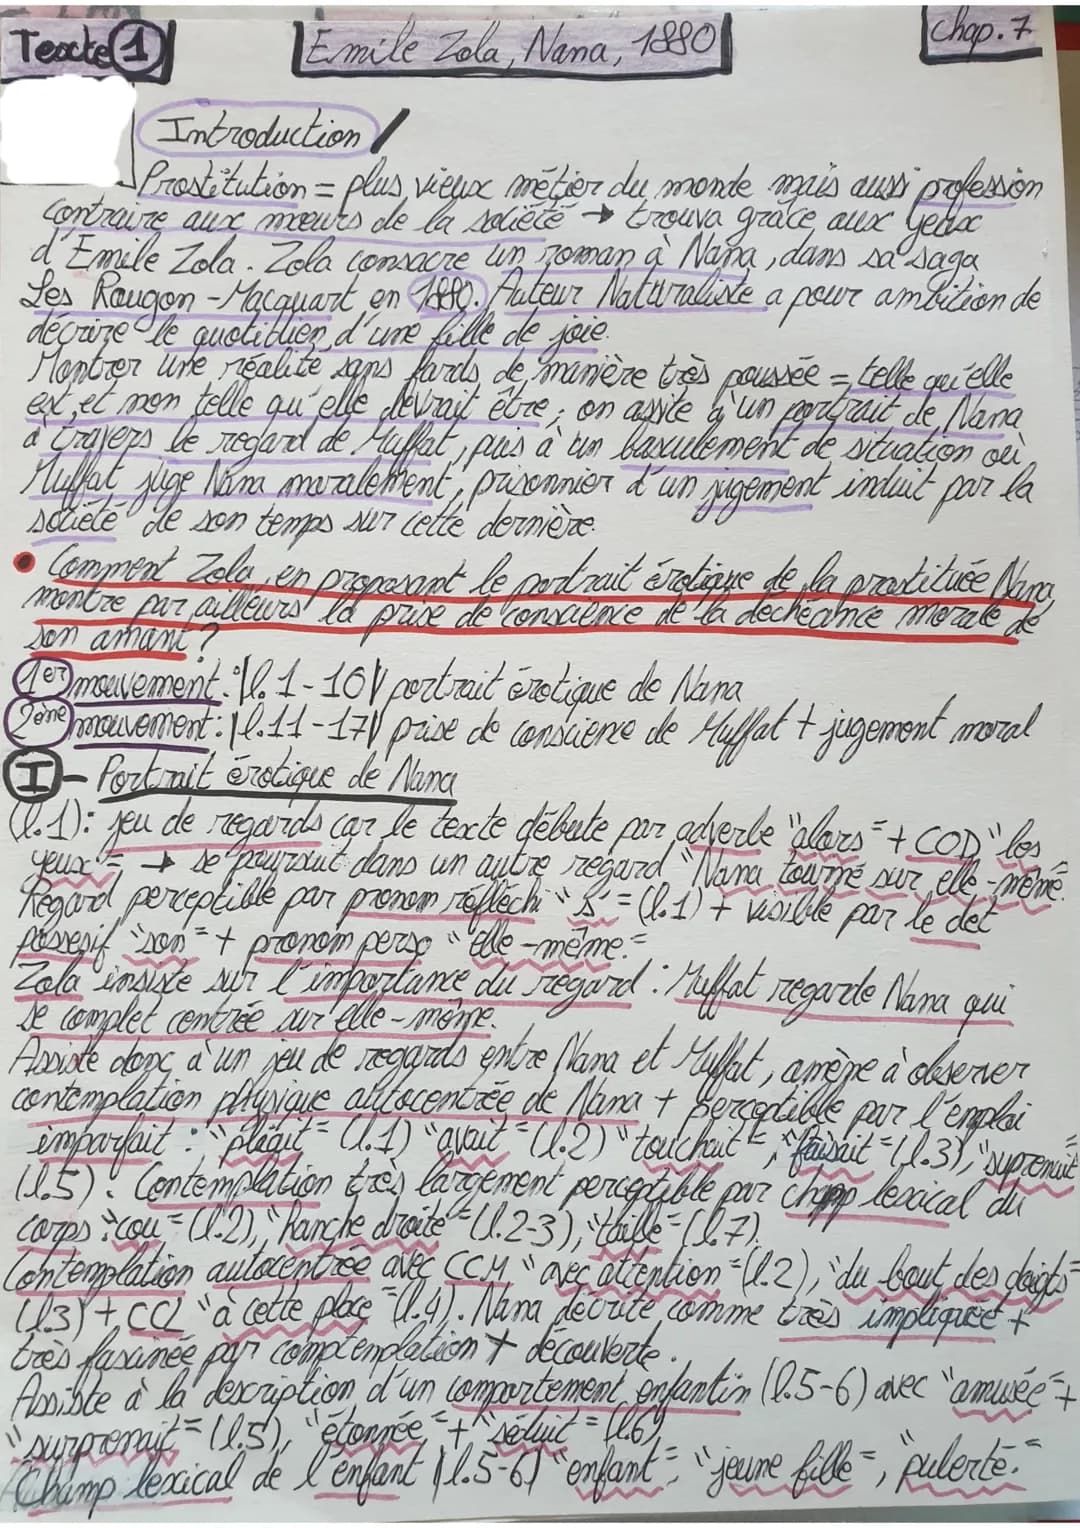 Texte 1
Emile Zola, Nana, 1880
Chap. 7
Introduction /
Prostitution = plus vieux métier du monde mais aussi profession
contraire aux mœurs de la société → trouva grâce aux yeux
d'Emile Zola. Zola consacre un roman à Nana, dans sa saga
Les Rougon-Macquart en 1880. Auteur Naturaliste a pour ambition de
décrire le quotidien d'une fille de joie.
Montrer une réalité sans fards de manière très poussée = telle qu'elle
est et non telle qu'elle devrait être ; on assite à un portrait de Nana
à travers le regard de Muffat, puis à un basculement de situation où
Muffat juge Nana moralement, prisonnier d'un jugement induit par la
société de son temps sur cette dernière.
• Comment Zola, en proposant le portrait érotique de la prostituée Nana,
montre par ailleurs la prise de conscience de la déchéance morale de
son amant ?
1er mouvement : |l. 1-10| portrait érotique de Nana
2ème mouvement : |l.11-17| prise de conscience de Muffat + jugement moral
I - Portrait érotique de Nana
(l.1): jeu de regards car le texte débute par adverbe "alors" + COD "les
yeux" → se poursuit dans un autre regard "Nana tourné sur elle-même.
Regard perceptible par pronom réfléchi "s'" (l.1) + visible par le det
possesif "son" + pronom perso "elle-même."
Zola insiste sur l'importance du regard : Muffat regarde Nana qui
se complet centrée sur elle-même.
Assiste donc à un jeu de regards entre Nana et Muffat, amène à observer
contemplation physique autocentrée de Nana + perceptible par l'emploi
imparfait : (l.1) "avait" (l.2) "touchait", "faisait" (l.3), "suprenait"
(l.5). Contemplation très largement perceptible par champ lexical du
corps : "cou" (l.2), "hanche droite" (l.2-3), "taille" (l.7).
Contemplation autocentrée avec CCM "avec attention" (l.2), "du bout des doigts"
(l.3) + CCL "à cette place" (l.4). Nana décrite comme très impliquée +
très fascinée par comptenplation + découverte.
Assiste à la description d'un comportement enfantin (l.5-6) avec "amusée" +
"surprenait" (l.5), "étonnée" + "séduit" (l.6)
Champ lexical de l'enfant (l.5-6) "enfant", "jeune fille", "puberté."